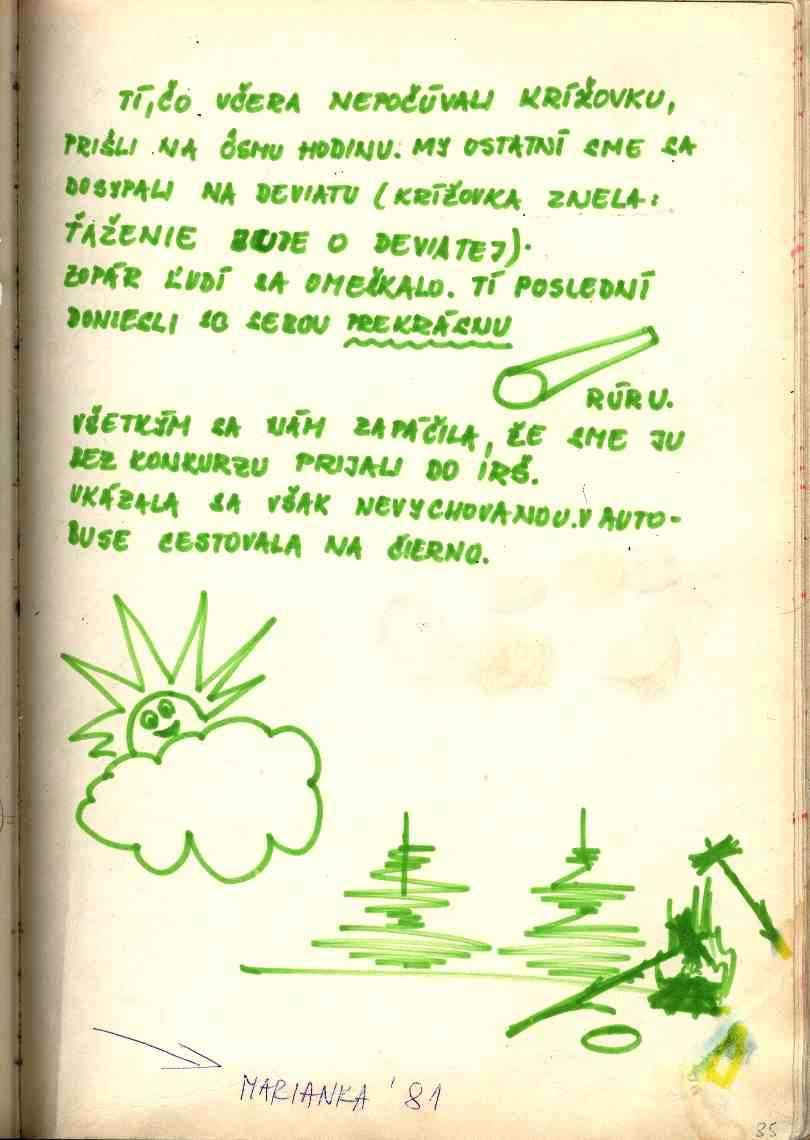 TÍ, ČO VČERA NEPOČÚVALI KRÍŽOVKU,
PRIŠLI NA ÔSMU HODINU. MY OSTATNÍ SME SA
DOSYPALI NA DEVIATU (KRÍŽOVKA ZNELA:
ŤAŽENIE BUDE O DEVIATEJ).
ZOPÁR ĽUDÍ SA OMEŠKALO. TÍ POSLEDNÍ
DONIESLI SO SEBOU PREKRÁSNU
RÚRU.
VŠETKÝM SA NÁM ZAPÁČILA, ŽE SME JU
BEZ KONKURZU PRIJALI DO IRŠ.
UKÁZALA SA VŠAK NEVYCHOVANOU. V AUTO-
BUSE CESTOVALA NA ČIERNO.
MARIANKA '81
85